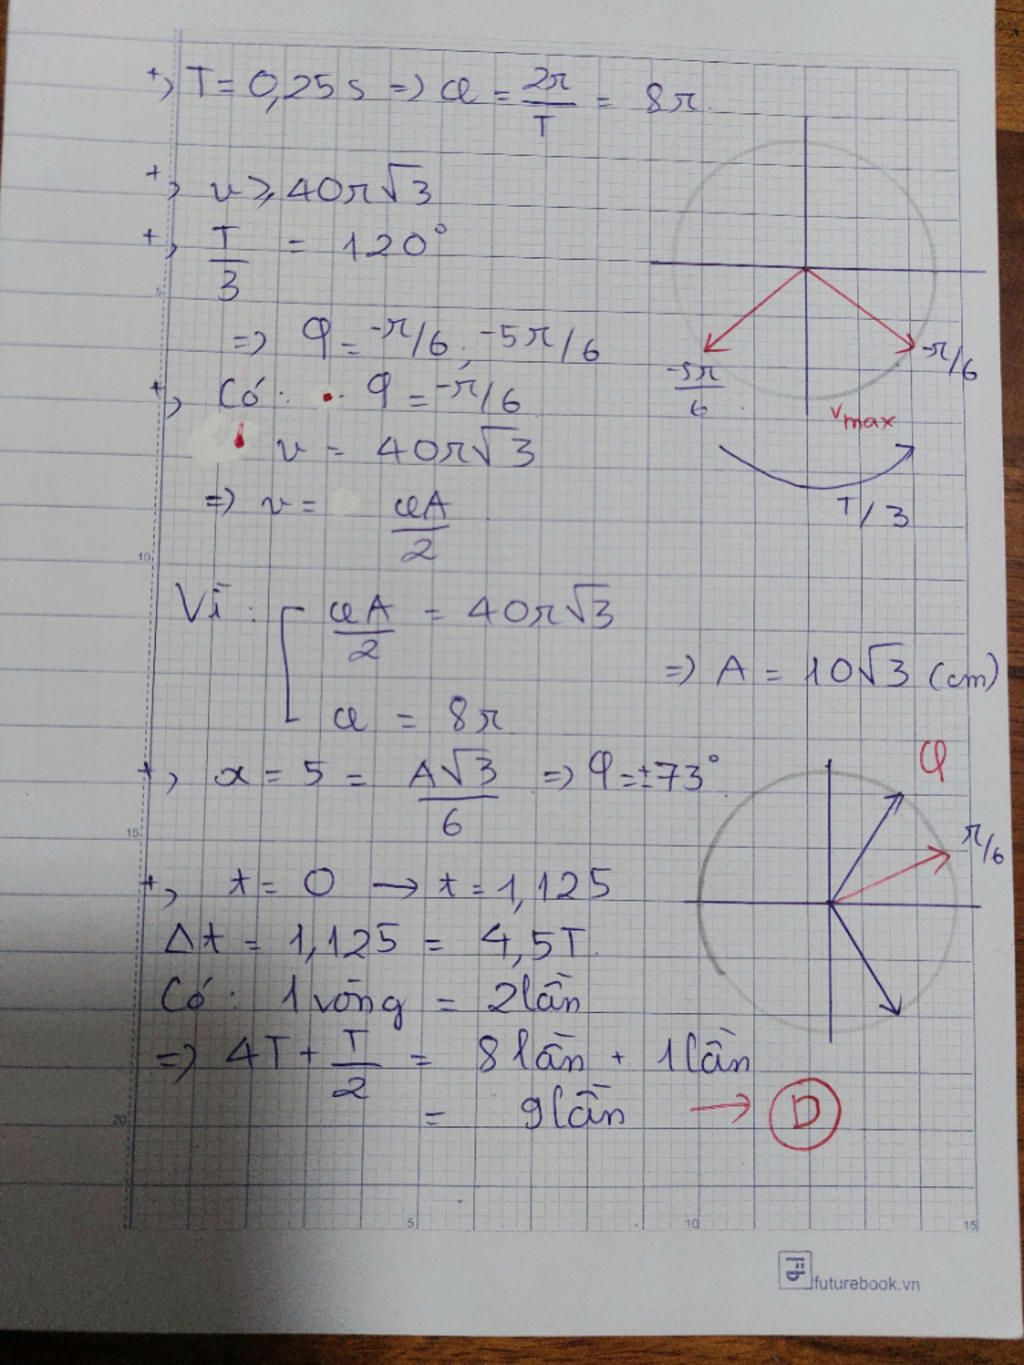 +, T = 0,25 s => ω = 2π/T = 8π
+, v ≥ 40π√3
+, T/3 = 120°
=> φ = -π/6 ; -5π/6
-5π/6
-π/6
vmax
T/3
+, Có: φ = -π/6
v = 40π√3
=> v = ωA/2
Vì: [ ωA/2 = 40π√3
ω = 8π
=> A = 10√3 (cm)
+, x = 5 = A√3/6 => φ = ±73°
φ
π/6
+, t = 0 → t = 1,125
Δt = 1,125 = 4,5T
Có: 1 vòng = 2 lần
=> 4T + T/2 = 8 lần + 1 lần
= 9 lần → D
5
10
15
20
5
10
15
futurebook.vn